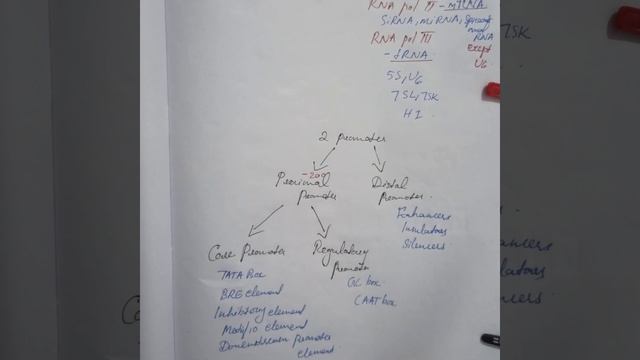 RNA pol II - mRNA
SiRNA, miRNA,
RNA
RNA pol III
Except
U6
- tRNA
5S, U6
7SL, 7SK
H1
7SK
2 promoter
-200
Proximal
promoter
Distal
promoter
Enhancers
Insulators
Silencers
Core Promoter
TATA Box
BRE element
Inhibitory element
element
Downstream Promoter
element
Regulatory
promoter
GC box
CAAT box